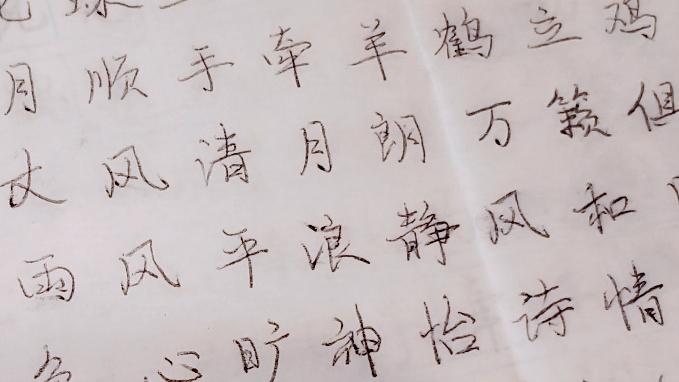 月顺手牵羊鹤立鸡
丈风清月朗万籁俱
雨风平浪静风和
心旷神怡诗情